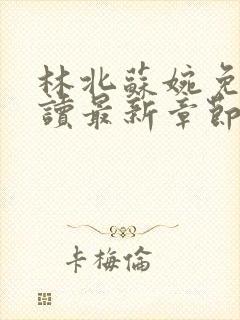 林北蘇婉免
讀最新章節
卡梅倫